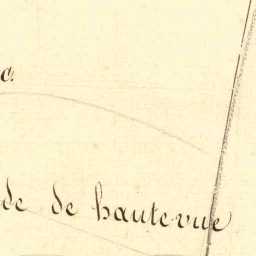 c.
de de hautevue